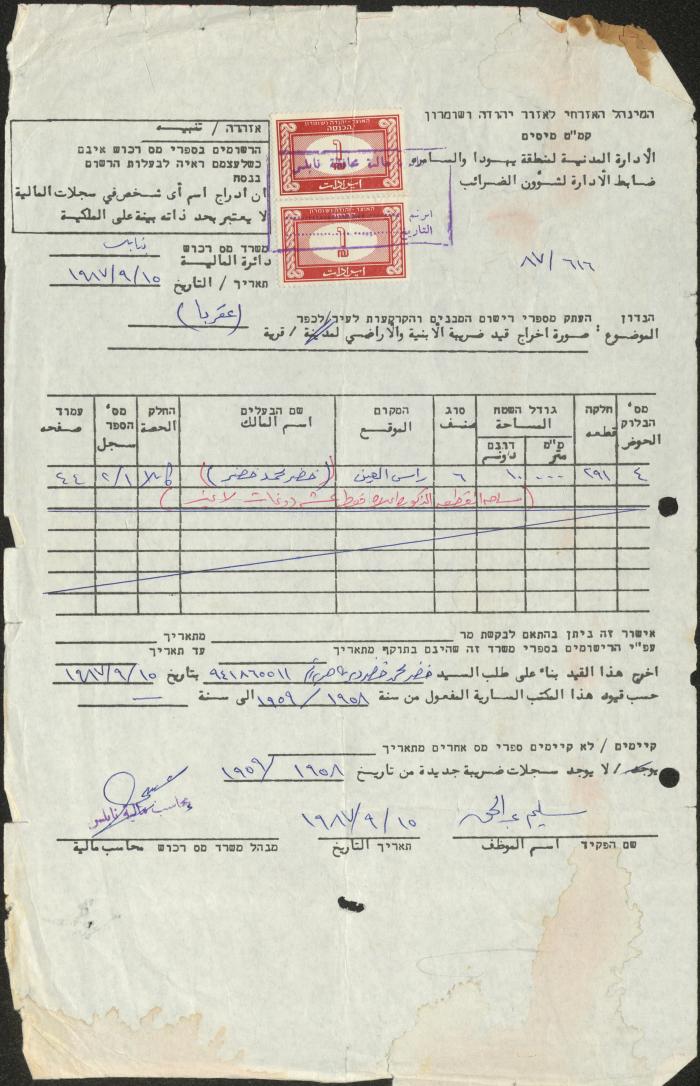 המינהל האזרחי לאזור יהודה ושומרון
קמ"ט מיסים
الادارة المدنية لمنطقة يهودا والسامره
ضابط الادارة لشؤون الضرائب
٨٧/٦١٦
אזהרה / تنبيه
הרשומים בספרי מס רכוש אינם
כשלעצמם ראיה לבעלות הרשום
בנסח
ان ادراج اسم أى شخص في سجلات المالية
لا يعتبر بحد ذاته بينة على الملكية
הכנסה
ايرادات
مالية محافظة نابلس
الرقم
التاريخ
ايرادات
משרד מס רכוש
دائرة المالية نابلس
תאריך / التاريخ ١٩٨٧/٩/١٥
הנדון העתק מספרי רישום המבנים והקרקעות לעיר/לכפר
الموضوع: صورة اخراج قيد ضريبة الأبنية والأراضي لمدينة / قرية (عقربا)
מס' הבלוק الحوض
חלקה قطعه
גודל השטח المساحة
מ"מ متر
דונם دونم
סוג صنف
המקום الموقع
שם הבעלים اسم المالك
החלק الحصة
מס' הספר سجل
עמוד صفحه
٤ ٢٩١ ... ١٠ ٦ راس العين (خضر محمد خضر) ٢/١ ٤٤
אישור זה ניתן בהתאם לבקשת מר מתאריך
עפ"י הרשומים בספרי משרד זה שהינם בתוקף מתאריך עד תאריך
اخرج هذا القيد بناء على طلب السيد خضر محمد خضر ٩٤١٨٦٥٥١١ بتاريخ ١٩٨٧/٩/١٥
حسب قيود هذا المكتب السارية المفعول من سنة ١٩٥٨/١٩٥٩ الى سنة —
קיימים / לא קיימים ספרי מס אחרים מתאריך
يوجد / لا يوجد سجلات ضريبة جديدة من تاريخ ١٩٥٨/١٩٥٩
محاسب مالية نابلس
١٩٨٧/٩/١٥
سليم عبد الحق
שם הפקיד اسم الموظف תאריך التاريخ מנהל משרד מס רכוש محاسب مالية